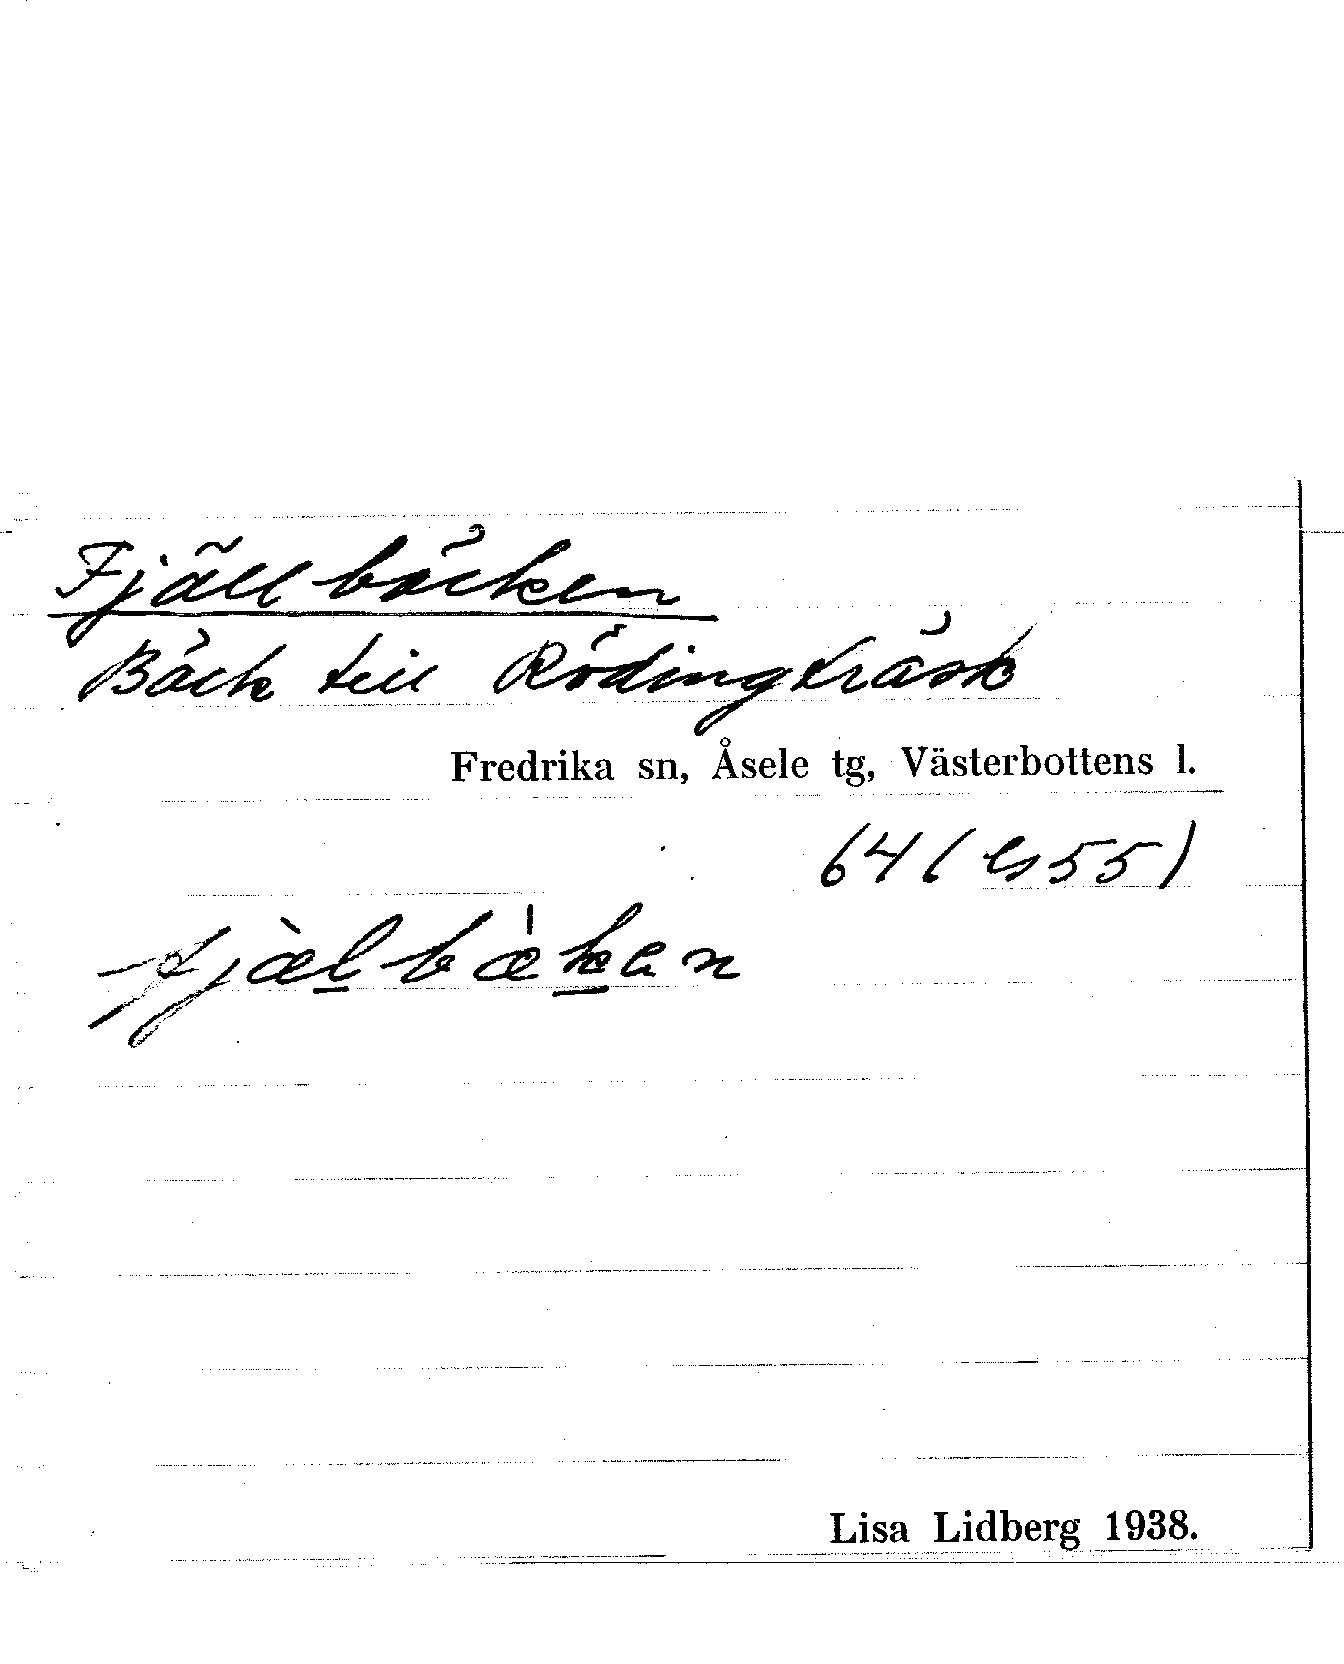 Fjällbäcken
Bäck till Rödingträsk
Fredrika sn, Åsele tg, Västerbottens l.
64 ( 55)
fjæ̀lbæ̍kan
Lisa Lidberg 1938.